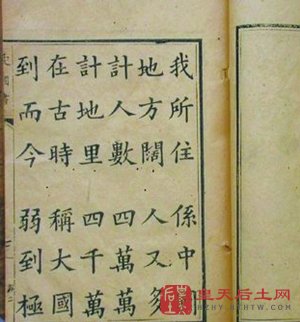 我所住 係中
地方闊 人又多
計人數 四萬萬
計地里 四千萬
在古時 稱大國
到而今 弱到極
皇天后土网